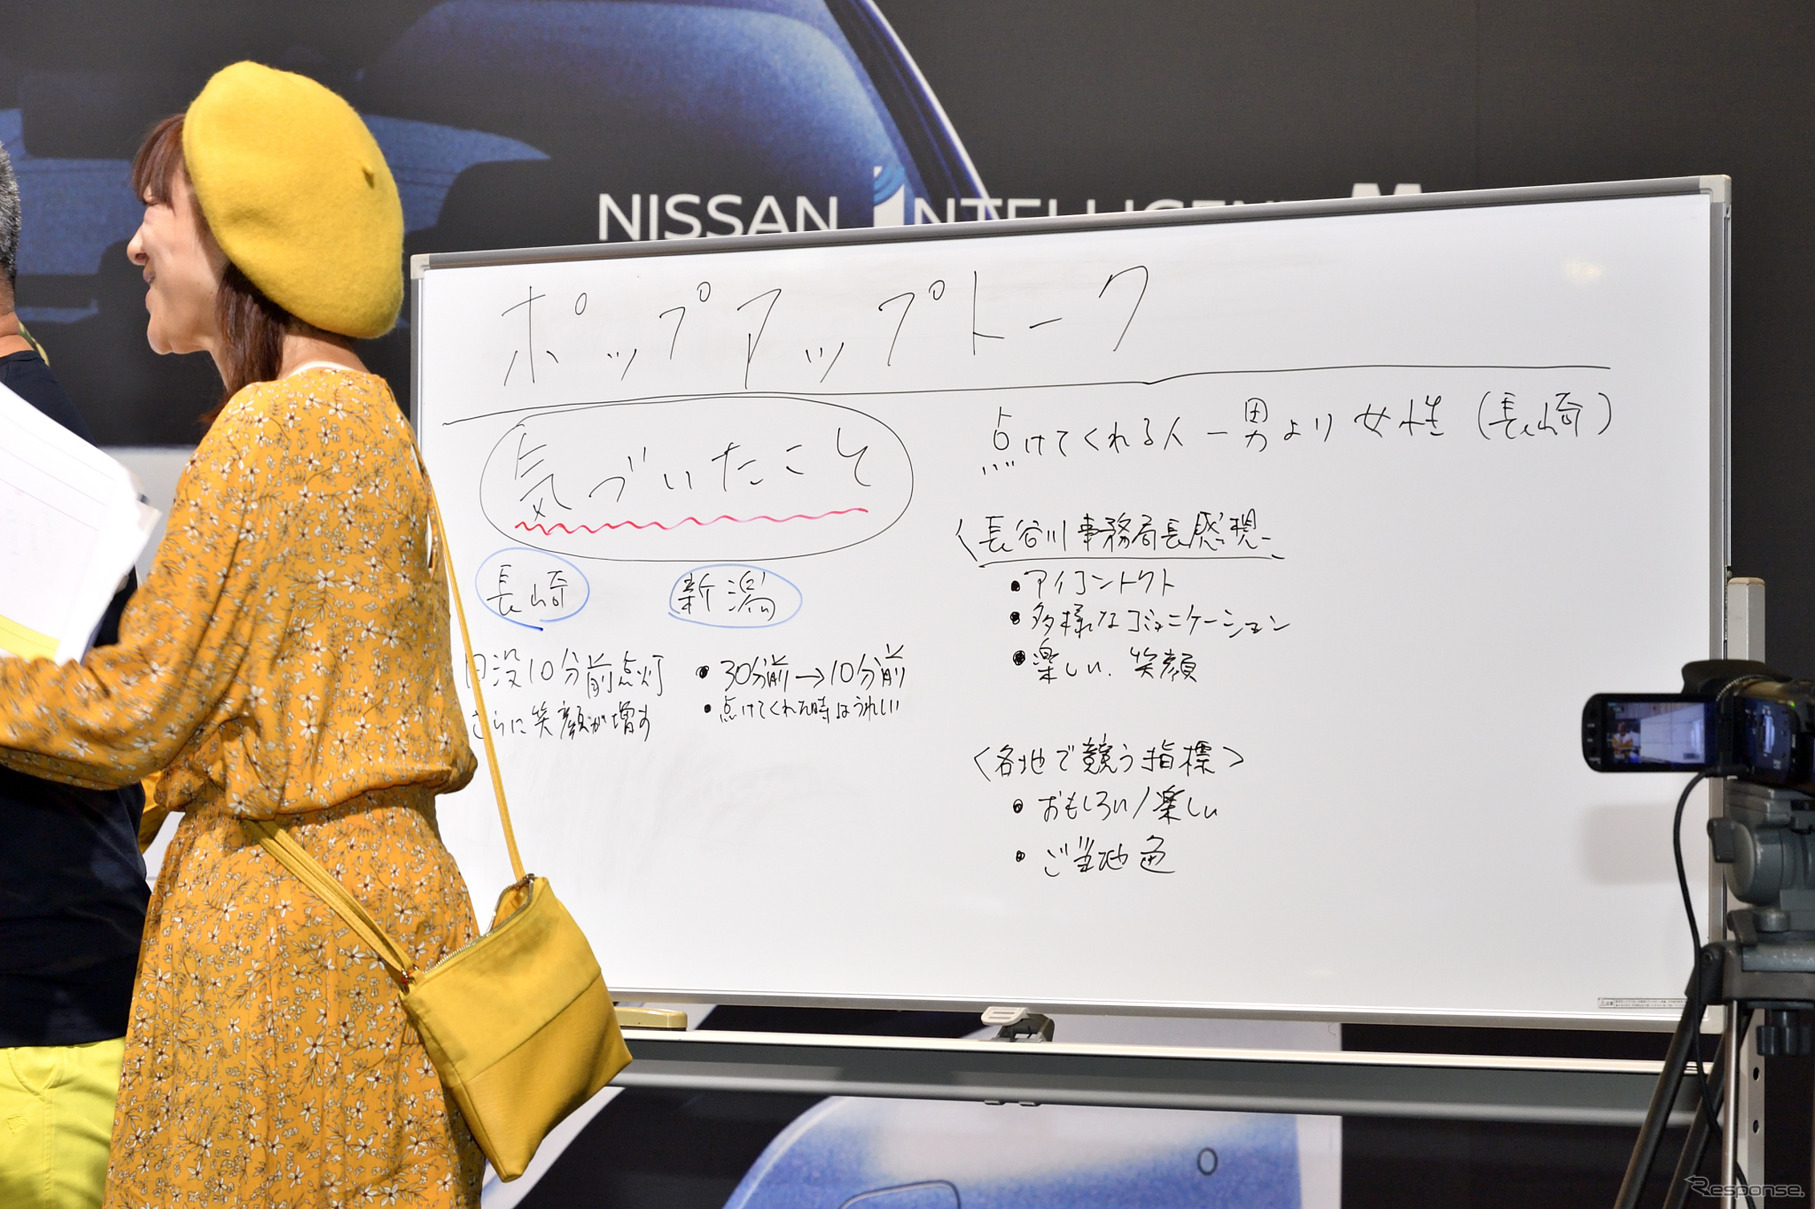 NISSAN INTELLIGENT M
ポップアップトーク
気づいたこと
長崎
日没10分前点灯
さらに笑顔が増す
新潟
・30分前→10分前
・点けてくれた時はうれしい
点けてくれる人ー男より女性(長崎)
〈長谷川事務局長感想
・アイコンタクト
・多様なコミュニケーション
・楽しい、笑顔
〈各地で競う指標〉
・おもしろい/楽しい
・ご当地色
Response.